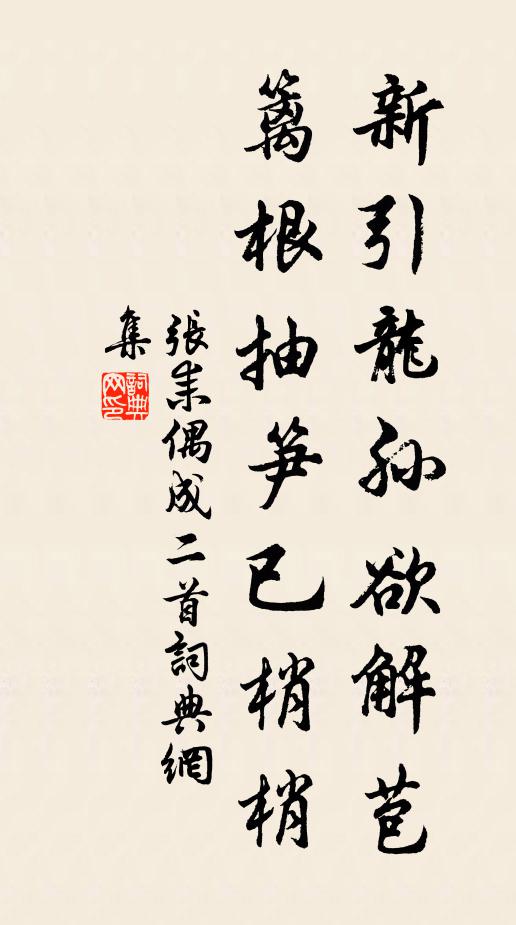 新引龍孫欲解苞
篱根抽笋已梢梢
張耒偶成二首詞典網
集
詞典网印